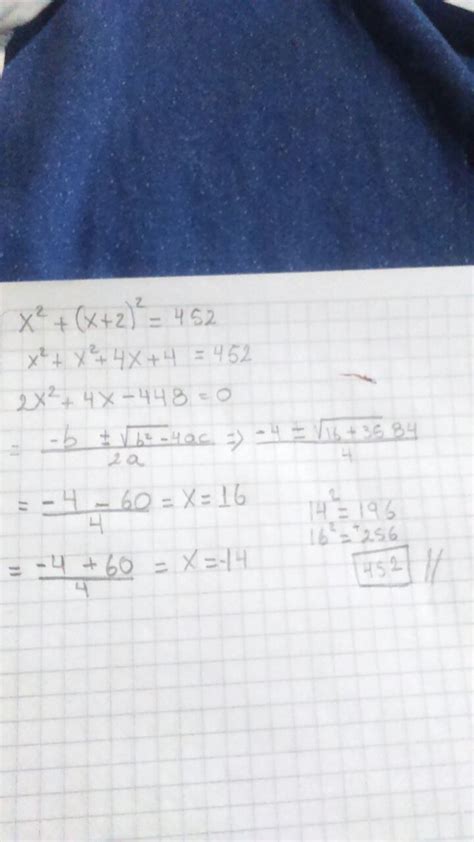 x² + (x+2)² = 452
x² + x² + 4x + 4 = 452
2x² + 4x - 448 = 0
= -b ± √b² - 4ac / 2a => -4 ± √16 + 3584 / 4
= -4 - 60 / 4 = x = 16
= -4 + 60 / 4 = x = -14
14² = 196
16² = 256
452 //